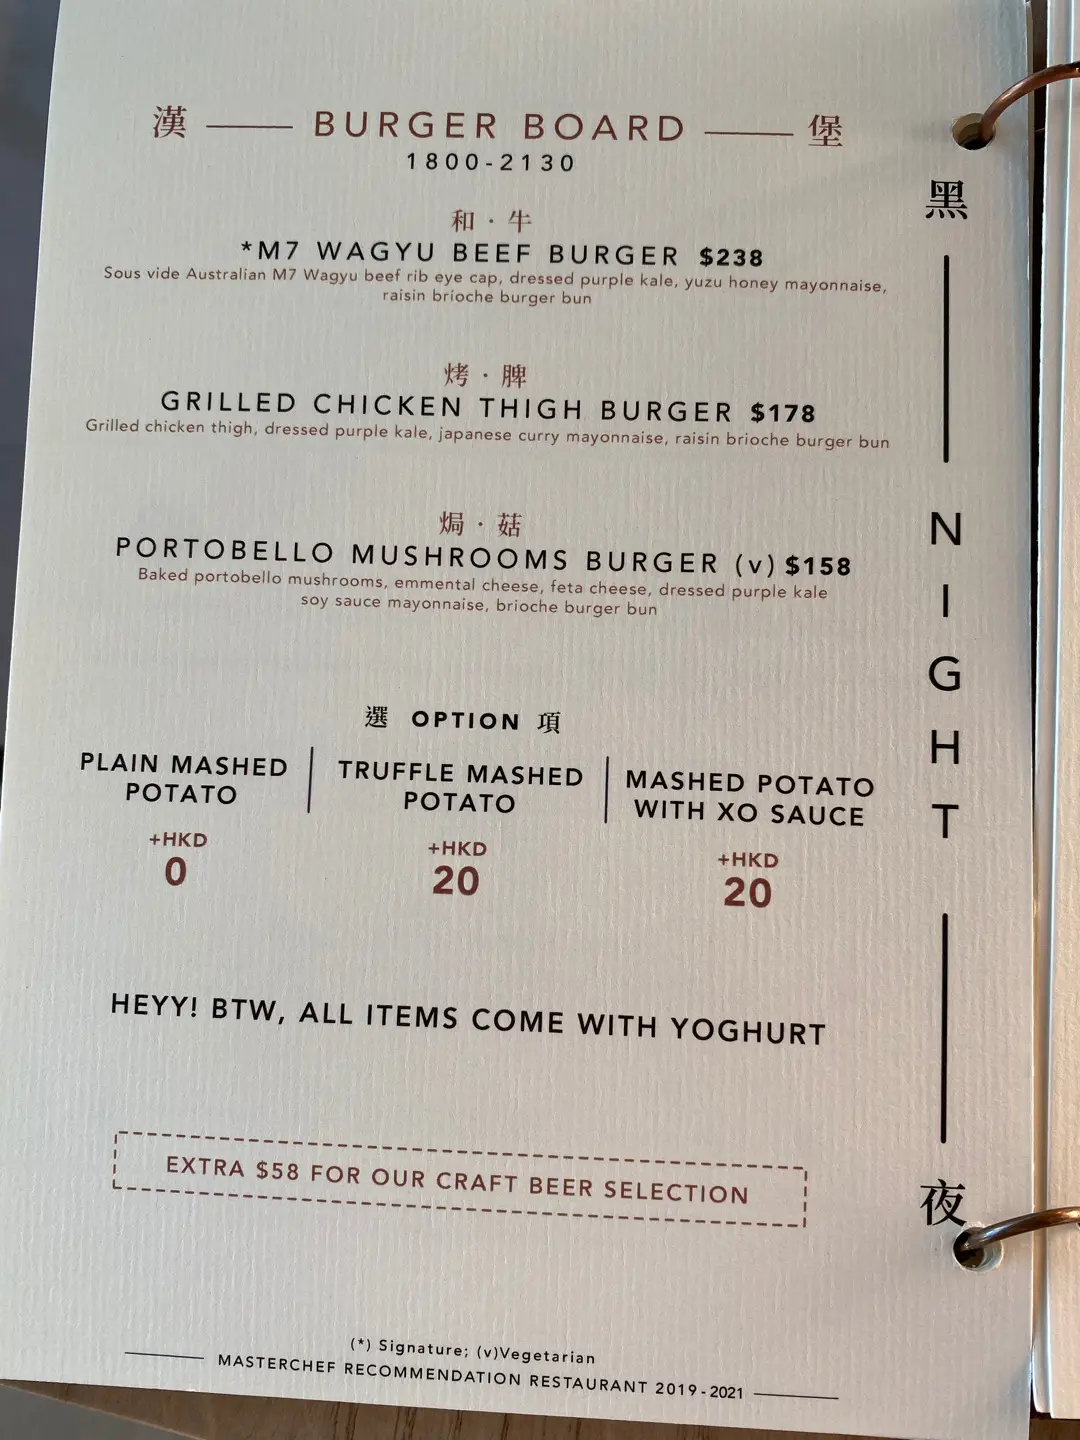 漢 BURGER BOARD 堡
1800-2130
和·牛
*M7 WAGYU BEEF BURGER $238
Sous vide Australian M7 Wagyu beef rib eye cap, dressed purple kale, yuzu honey mayonnaise,
raisin brioche burger bun
烤·脾
GRILLED CHICKEN THIGH BURGER $178
Grilled chicken thigh, dressed purple kale, japanese curry mayonnaise, raisin brioche burger bun
焗·菇
PORTOBELLO MUSHROOMS BURGER (v) $158
Baked portobello mushrooms, emmental cheese, feta cheese, dressed purple kale
soy sauce mayonnaise, brioche burger bun
選 OPTION 項
PLAIN MASHED
POTATO
+HKD
0
TRUFFLE MASHED
POTATO
+HKD
20
MASHED POTATO
WITH XO SAUCE
+HKD
20
HEYY! BTW, ALL ITEMS COME WITH YOGHURT
EXTRA $58 FOR OUR CRAFT BEER SELECTION
(*) Signature; (v)Vegetarian
MASTERCHEF RECOMMENDATION RESTAURANT 2019-2021
黑
NIGHT
夜